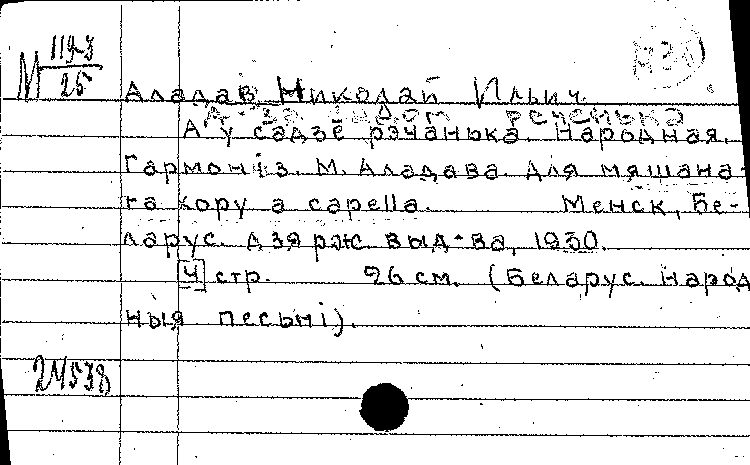 М 1193/25
Аладав Николай Ильич.
А за садом реченька
А у садзе рэчанька. Народная.
Гармоніз. М. Аладава. Для мяшана-
га хору a capella. Менск, Бе-
ларус. дзярж. выд-ва, 1930.
[4] стр. 26 см. (Беларус. народ
ныя песьні).
24538